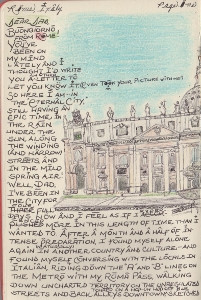 Rome, Italy
DEAR DAD,
BUONGIORNO
FROM ROME!
YOU'VE
BEEN ON
MY MIND
LATELY AND I
THOUGHT I'D WRITE
YOU A LETTER TO
LET YOU KNOW IT. I EVEN TOOK YOUR PICTURE WITH ME!
SO HERE I AM IN
THE ETERNAL CITY,
STILL HAVING AN
EPIC TIME, IN
THE RAIN
UNDER THE
SUN, ALONG
THE WINDING
(AND NARROW)
STREETS AND
IN THE MILD
SPRING AIR.
WELL, DAD,
I'VE BEEN IN
THE CITY FOR
THREE FULL
DAYS NOW AND I FEEL AS IF I
MORE IN THIS LENGTH OF TIME THAN I
WANTED TO. AFTER A MONTH AND A HALF OF IN-
TENSE PREPARATION, I FOUND MYSELF ALONE
AGAIN IN ANOTHER COUNTRY AND CULTURE AND
FOUND MYSELF CONVERSING WITH THE LOCALS IN
ITALIAN, RIDING DOWN THE 'A' AND 'B' LINES ON
THE METRO WITH MY ROMA PASS, WALKING
DOWN UNCHARTED TERRITORY ON THE
STREETS AND BACK ALLEYS DOWNTOWN